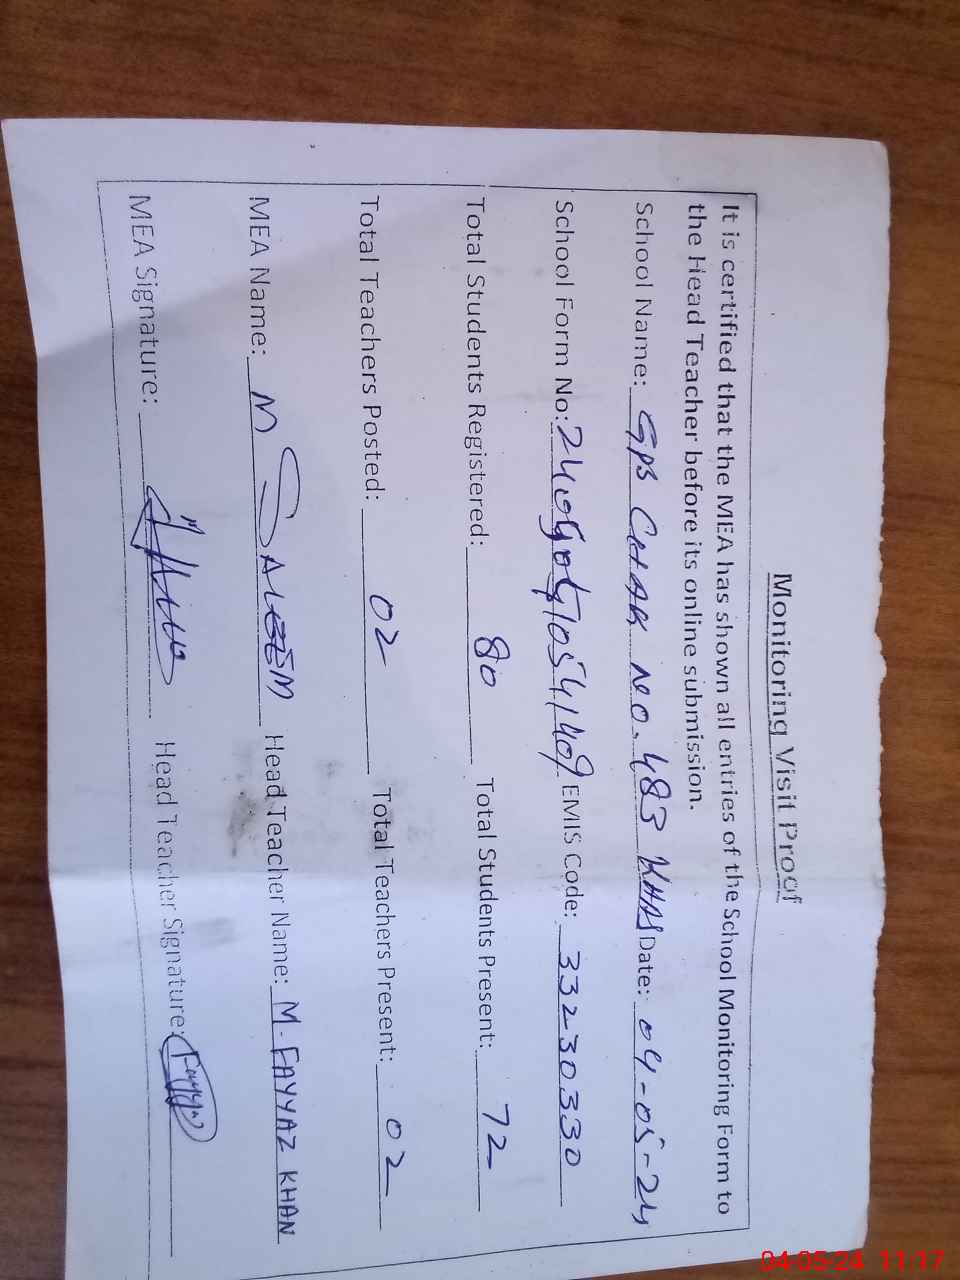 Monitoring Visit Proof
It is certified that the MEA has shown all entries of the School Monitoring Form to
the Head Teacher before its online submission.
School Name: GPS CHAK NO. 483 KHAS Date: 04-05-24
School Form No: EMIS Code: 33230330
Total Students Registered: 80 Total Students Present: 72
Total Teachers Posted: 02 Total Teachers Present: 02
MEA Name: M SALEEM Head Teacher Name: M. FAYYAZ KHAN
MEA Signature: Head Teacher Signature: Fayyaz
04-05-24 11:17